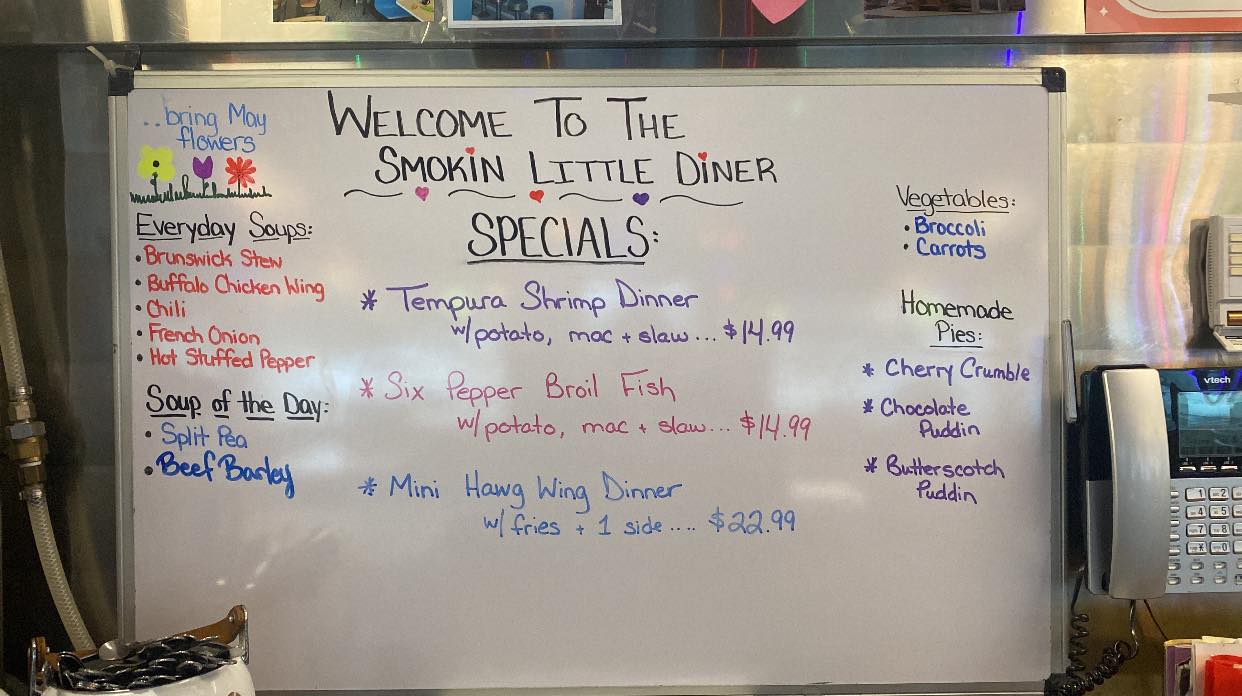 ..bring May
flowers
WELCOME TO THE
SMOKIN LITTLE DINER
SPECIALS:
Everyday Soups:
• Brunswick Stew
• Buffalo Chicken Wing
• Chili
• French Onion
• Hot Stuffed Pepper
Soup of the Day:
• Split Pea
• Beef Barley
* Tempura Shrimp Dinner
w/potato, mac + slaw... $14.99
* Six Pepper Broil Fish
w/potato, mac + slaw... $14.99
* Mini Hawg Wing Dinner
w/ fries + 1 side.... $22.99
Vegetables:
• Broccoli
• Carrots
Homemade
Pies:
* Cherry Crumble
* Chocolate
Puddin
* Butterscotch
Puddin
vtech
1 2
4 5
7 8
* 0